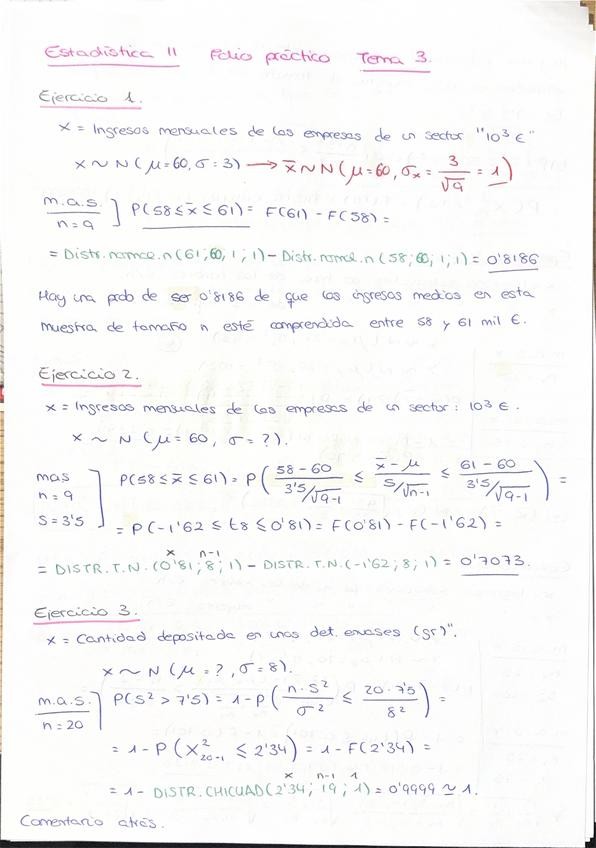 Estadística II Folio práctico Tema 3.
Ejercicio 1.
X = Ingresos mensuales de las empresas de un sector "10³ €"
X ~ N (μ=60, σ=3) → x̄ ~ N (μ=60, σx = 3/√9 = 1)
m.a.s. n=9 ] P(58 ≤ x̄ ≤ 61) = F(61) - F(58) =
= Distr.normal.n(61;60;1;1) - Distr.normal.n(58;60;1;1) = 0'8186
Hay una prob de ser 0'8186 de que los ingresos medios en esta
muestra de tamaño n esté comprendida entre 58 y 61 mil €.
Ejercicio 2.
X = Ingresos mensuales de las empresas de un sector: 10³ €.
X ~ N (μ=60, σ=?).
mas n=9 S=3'5 ] P(58 ≤ x̄ ≤ 61) = P( (58-60)/(3'5/√9-1) ≤ (x̄-μ)/(S/√n-1) ≤ (61-60)/(3'5/√9-1) ) =
= P(-1'62 ≤ t8 ≤ 0'81) = F(0'81) - F(-1'62) =
x n-1
= DISTR.T.N.(0'81; 8; 1) - DISTR.T.N.(-1'62; 8; 1) = 0'7073.
Ejercicio 3.
X = Cantidad depositada en unos det. envases (gr)".
X ~ N (μ=?, σ=8).
m.a.s. n=20 ] P(S² > 7'5) = 1 - P( n·S²/σ² ≤ 20·7'5/8² ) =
= 1 - P (X²20-1 ≤ 2'34) = 1 - F(2'34) =
x n-1 1
= 1 - DISTR.CHICUAD(2'34; 19; 1) = 0'9999 ≃ 1.
Comentario atrás.